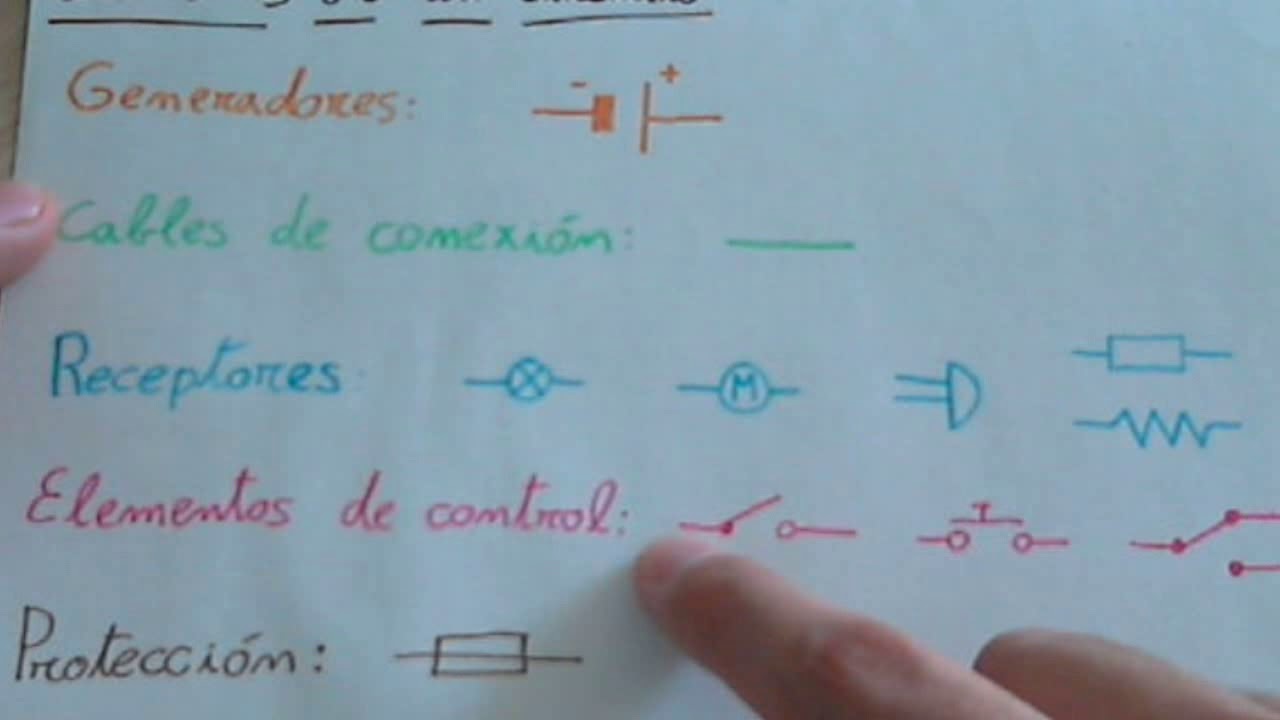 Generadores: - +
Cables de conexión:
Receptores: M
Elementos de control:
Protección: